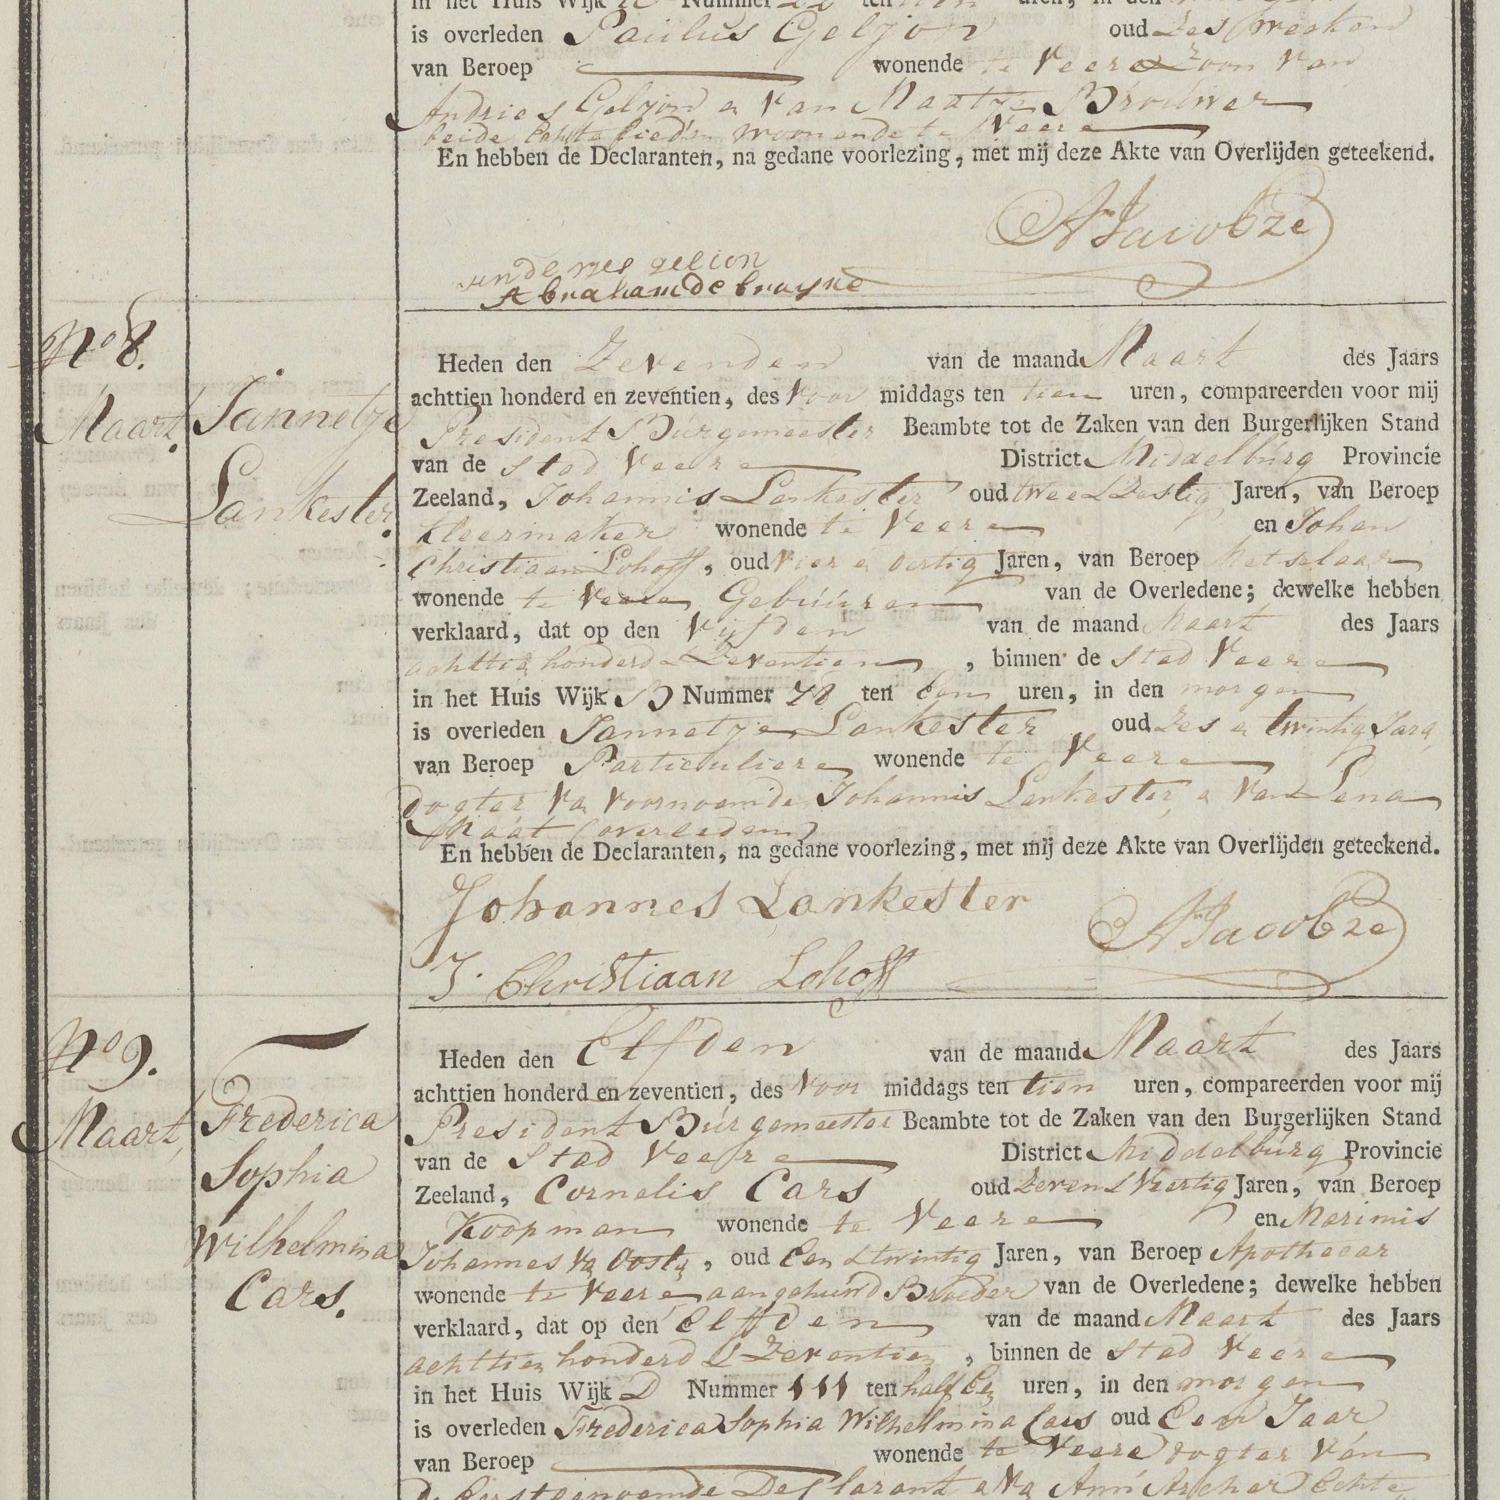 in het Huis Wijk Nummer ten uren, in den
is overleden Paulus Geljon oud Zes weeken
van Beroep wonende te Veere Zoon van
Andries Geljon en van Maatje Brouwer
beide Echte lieden woonende te Veere
En hebben de Declaranten, na gedane voorlezing, met mij deze Akte van Overlijden geteekend.
AJacobze
andries gelion
Abraham de bruyne
No 8.
Maart.
Jannetje
Lankester.
Heden den Zevenden van de maand Maart des Jaars
achttien honderd en zeventien, des Voor middags ten tien uren, compareerden voor mij
President Burgemeester Beambte tot de Zaken van den Burgerlijken Stand
van de Stad Veere District Middelburg Provincie
Zeeland, Johannis Lankester oud twee & Zestig Jaren, van Beroep
Kleermaker wonende te Veere en Johan
Christiaan Lohoff, oud vier en dertig Jaren, van Beroep Metselaar
wonende te Veere Gebuuren van de Overledene; dewelke hebben
verklaard, dat op den Vijfden van de maand Maart des Jaars
achttien honderd & Zeventien, binnen de Stad Veere
in het Huis Wijk B Nummer 78 ten Een uren, in den morgen
is overleden Jannetje Lankester oud Zes en twintig Jare
van Beroep Particuliere wonende te Veere
dogter van voornoemde Johannis Lankester, en van Lena
Maat (overleden)
En hebben de Declaranten, na gedane voorlezing, met mij deze Akte van Overlijden geteekend.
Johannes Lankester
AJacobze
J. Christiaan Lohoff
No 9.
Maart
Frederica
Sophia
Wilhelmina
Cars.
Heden den Elfden van de maand Maart des Jaars
achttien honderd en zeventien, des Voor middags ten tien uren, compareerden voor mij
President Burgemeester Beambte tot de Zaken van den Burgerlijken Stand
van de Stad Veere District Middelburg Provincie
Zeeland, Cornelis Cars oud Zeven & Veertig Jaren, van Beroep
Koopman wonende te Veere en Marinis
Johannes van Oosten, oud Een & twintig Jaren, van Beroep Apothecar
wonende te Veere aangehuwd Broeder van de Overledene; dewelke hebben
verklaard, dat op den Elfden van de maand Maart des Jaars
achttien honderd & Zeventien, binnen de Stad Veere
in het Huis Wijk D Nummer 111 ten half Een uren, in den morgen
is overleden Frederica Sophia Wilhelmina Cars oud Een Jaar
van Beroep wonende te Veere dogter van
de Eerstgenoemde Declarant en van Ann Archer Echte